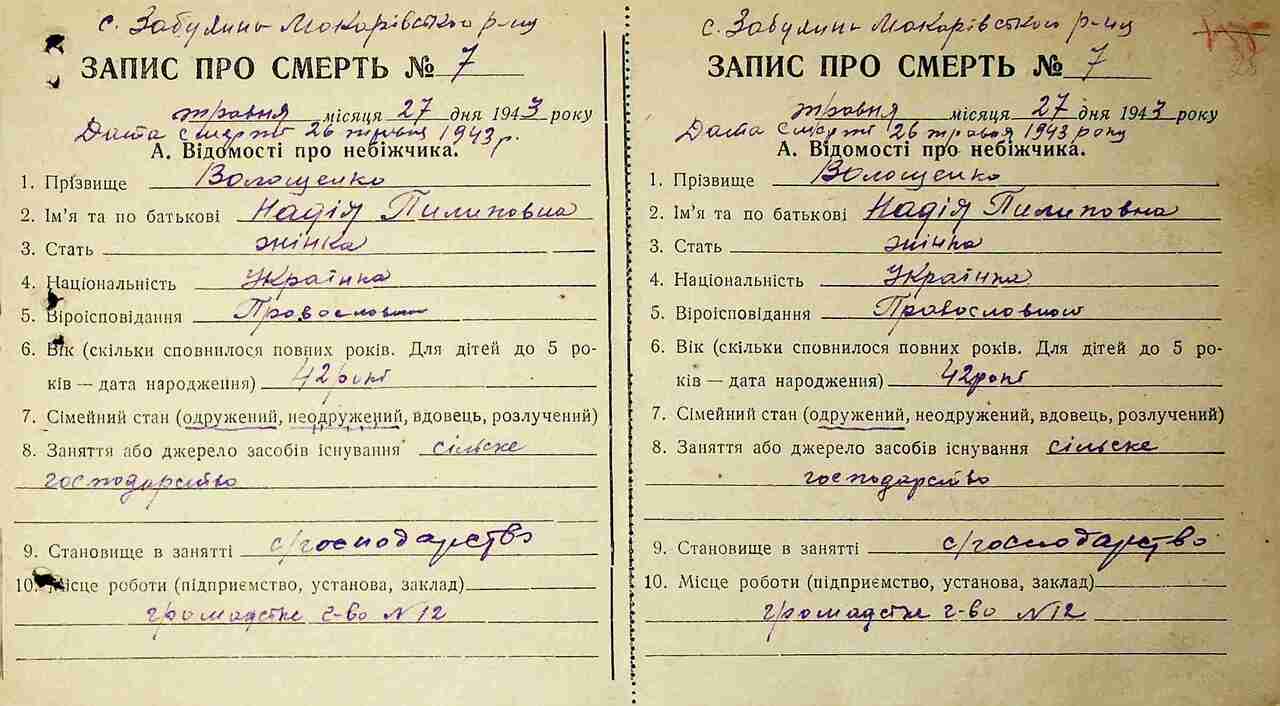 с. Забуянь Макарівського р-ну
ЗАПИС ПРО СМЕРТЬ № 7
травня місяця 27 дня 1943 року
Дата смерти 26 травня 1943 р.
А. Відомості про небіжчика.
1. Прізвище Волощенко
2. Ім'я та по батькові Надія Пилиповна
3. Стать жінка
4. Національність Українка
5. Віроісповідання Православна
6. Вік (скільки сповнилося повних років. Для дітей до 5 ро-
ків — дата народження) 42 роки
7. Сімейний стан (одружений, неодружений, вдовець, розлучений)
8. Заняття або джерело засобів існування сільске
господарство
9. Становище в занятті с/господарство
10. Місце роботи (підприємство, установа, заклад)
громадске г-во №12
с. Забуянь Макарівського р-ну
ЗАПИС ПРО СМЕРТЬ № 7
травня місяця 27 дня 1943 року
Дата смерти 26 травня 1943 року
А. Відомості про небіжчика.
1. Прізвище Волощенко
2. Ім'я та по батькові Надія Пилиповна
3. Стать жінка
4. Національність Українка
5. Віроісповідання Православна
6. Вік (скільки сповнилося повних років. Для дітей до 5 ро-
ків — дата народження) 42 роки
7. Сімейний стан (одружений, неодружений, вдовець, розлучений)
8. Заняття або джерело засобів існування сільске
господарство
9. Становище в занятті с/господарство
10. Місце роботи (підприємство, установа, заклад)
громадске г-во №12